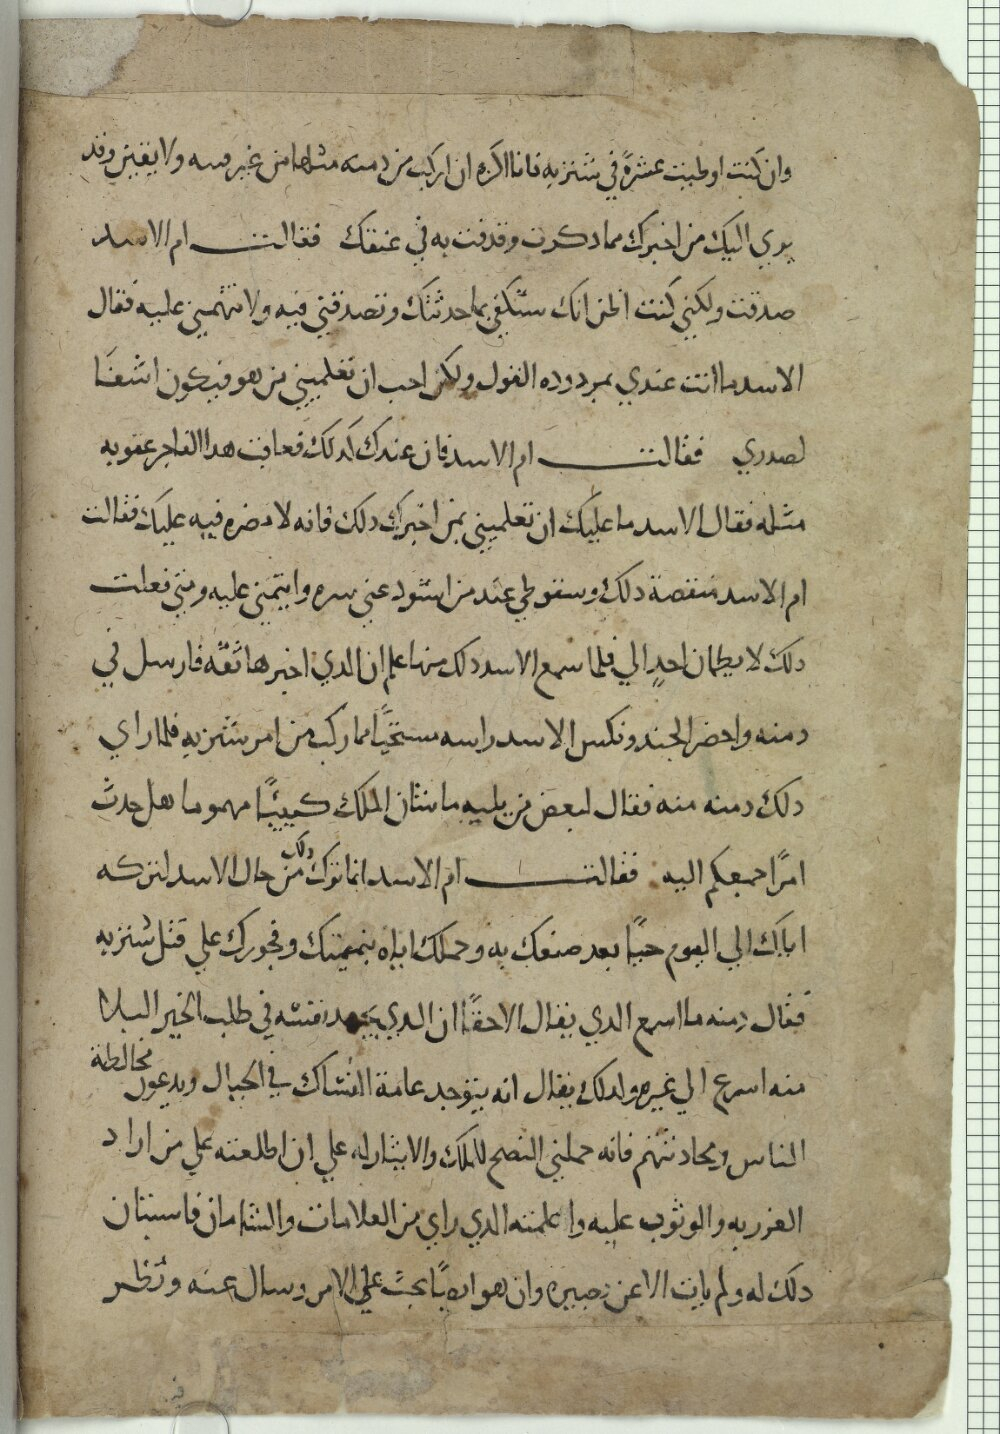 وان كنت اوطيت عشرة في شنزبه فانا اكره ان اركب من دمنه مثلها من غير ... ولا يقين وقد
... اليك من اخبرك مما ذكرت وقذفت به في عنقك فقالت ام الاسد
صدقت ولكني كنت اظن انك ستكفي بما حدثتك وتصدقني فيه ولا تتهمني عليه فقال
الاسد ما انت عندي بمردوده القول ولكن احب ان تعلميني من هو فيكون اشفا
لصدري فقالت ام الاسد فان عندك كذلك فعاقب هدا الفاجر عقوبه
مثله فقال الاسد ما عليك ان تعلميني بمن اخبرك دلك فانه لا مضره فيه عليك فقالت
ام الاسد منقصة دلك وسقوطي عند من استودعني سره وايتمني عليه ومتي فعلت
دلك لا يطمان احد الي فلما سمع الاسد دلك منها علم ان الدي اخبرها ثقه فارسل في
دمنه واحضر الجند ونكس الاسد راسه مستحيًا مما ركب من امر شنزبه فلما راي
دلك دمنه منه فقال لبعض من يليه ما شان الملك كييبًا مهموما هل حدث
امرًا جمعكم اليه فقالت ام الاسد انما ترك دلك من حال الاسد لتركه
اياك الي اليوم حيًا بعد صنعك به وحملك اياه بنميمتك وفجورك علي قتل شنزبه
فقال دمنه ما اسمع الدي يقال الا حقًا ان الدي يجهد نفسه في طلب الخير البلا
منه اسرع الي غيره ولدلك يقال انه يتوجد عامة النساك في الجبال ويدعون مخالطة
الناس ومحادثتهم فانه حملني النصح للملك والايثار له علي ان اطلعته علي من اراد
الغدر به والوثوب عليه واعلمته الدي راي من العلامات والشامات فاستبان
دلك له ولم يات الا عن ... وان هو ايضًا بحث علي الامر وسال عنه ونظر